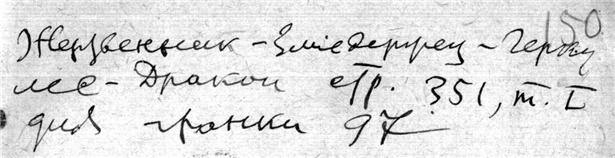 150
Жертвенник – Змиедержец – Герку
лес – Дракон стр. 351, т. I
для гранки 97